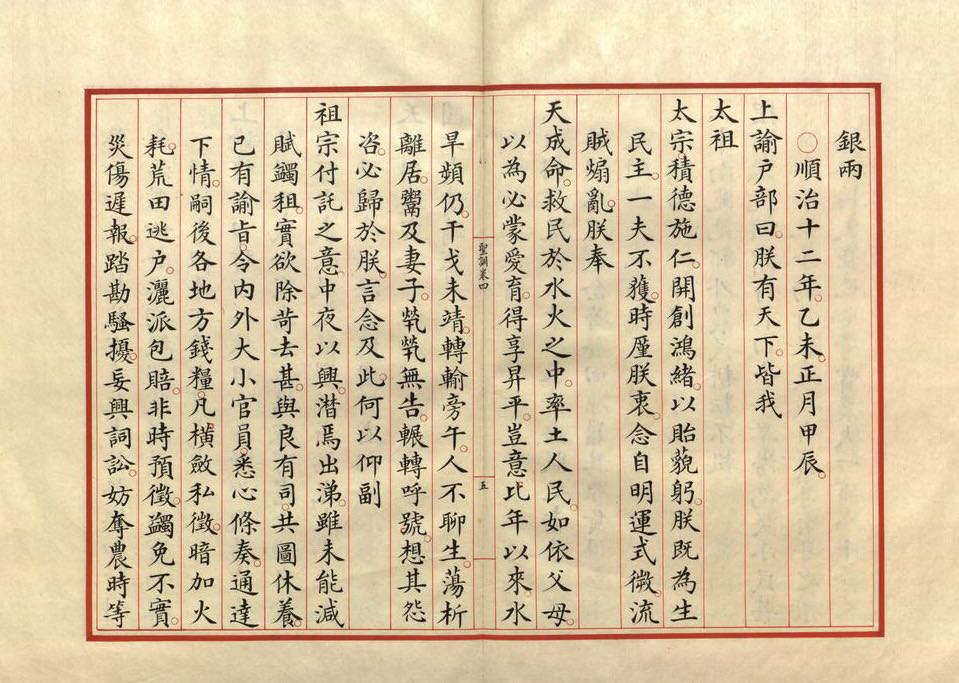 銀兩
○順治十二年。乙未。正月甲辰。
上諭戶部曰。朕有天下。皆我
太祖
太宗積德施仁。開創鴻緒。以貽藐躬。朕既為生
民主。一夫不獲。時廑朕衷。念自明運式微。流
賊煽亂。朕奉
天成命。救民於水火之中。率土人民。如依父母。
以為必蒙愛育。得享昇平。豈意比年以來。水
聖訓卷四
五
旱頻仍。干戈未靖。轉輸旁午。人不聊生。蕩析
離居。鬻及妻子。煢煢無告。輾轉呼號。想其怨
咨。必歸於朕。言念及此。何以仰副
祖宗付託之意。中夜以興。潸焉出涕。雖未能減
賦蠲租。實欲除苛去甚。與良有司。共圖休養。
已有諭旨。令內外大小官員。悉心條奏。通達
下情。嗣後各地方錢糧。凡橫斂私徵。暗加火
耗。荒田逃戶。灑派包賠。非時預徵。蠲免不實。
災傷遲報。踏勘騷擾。妄興詞訟。妨奪農時等